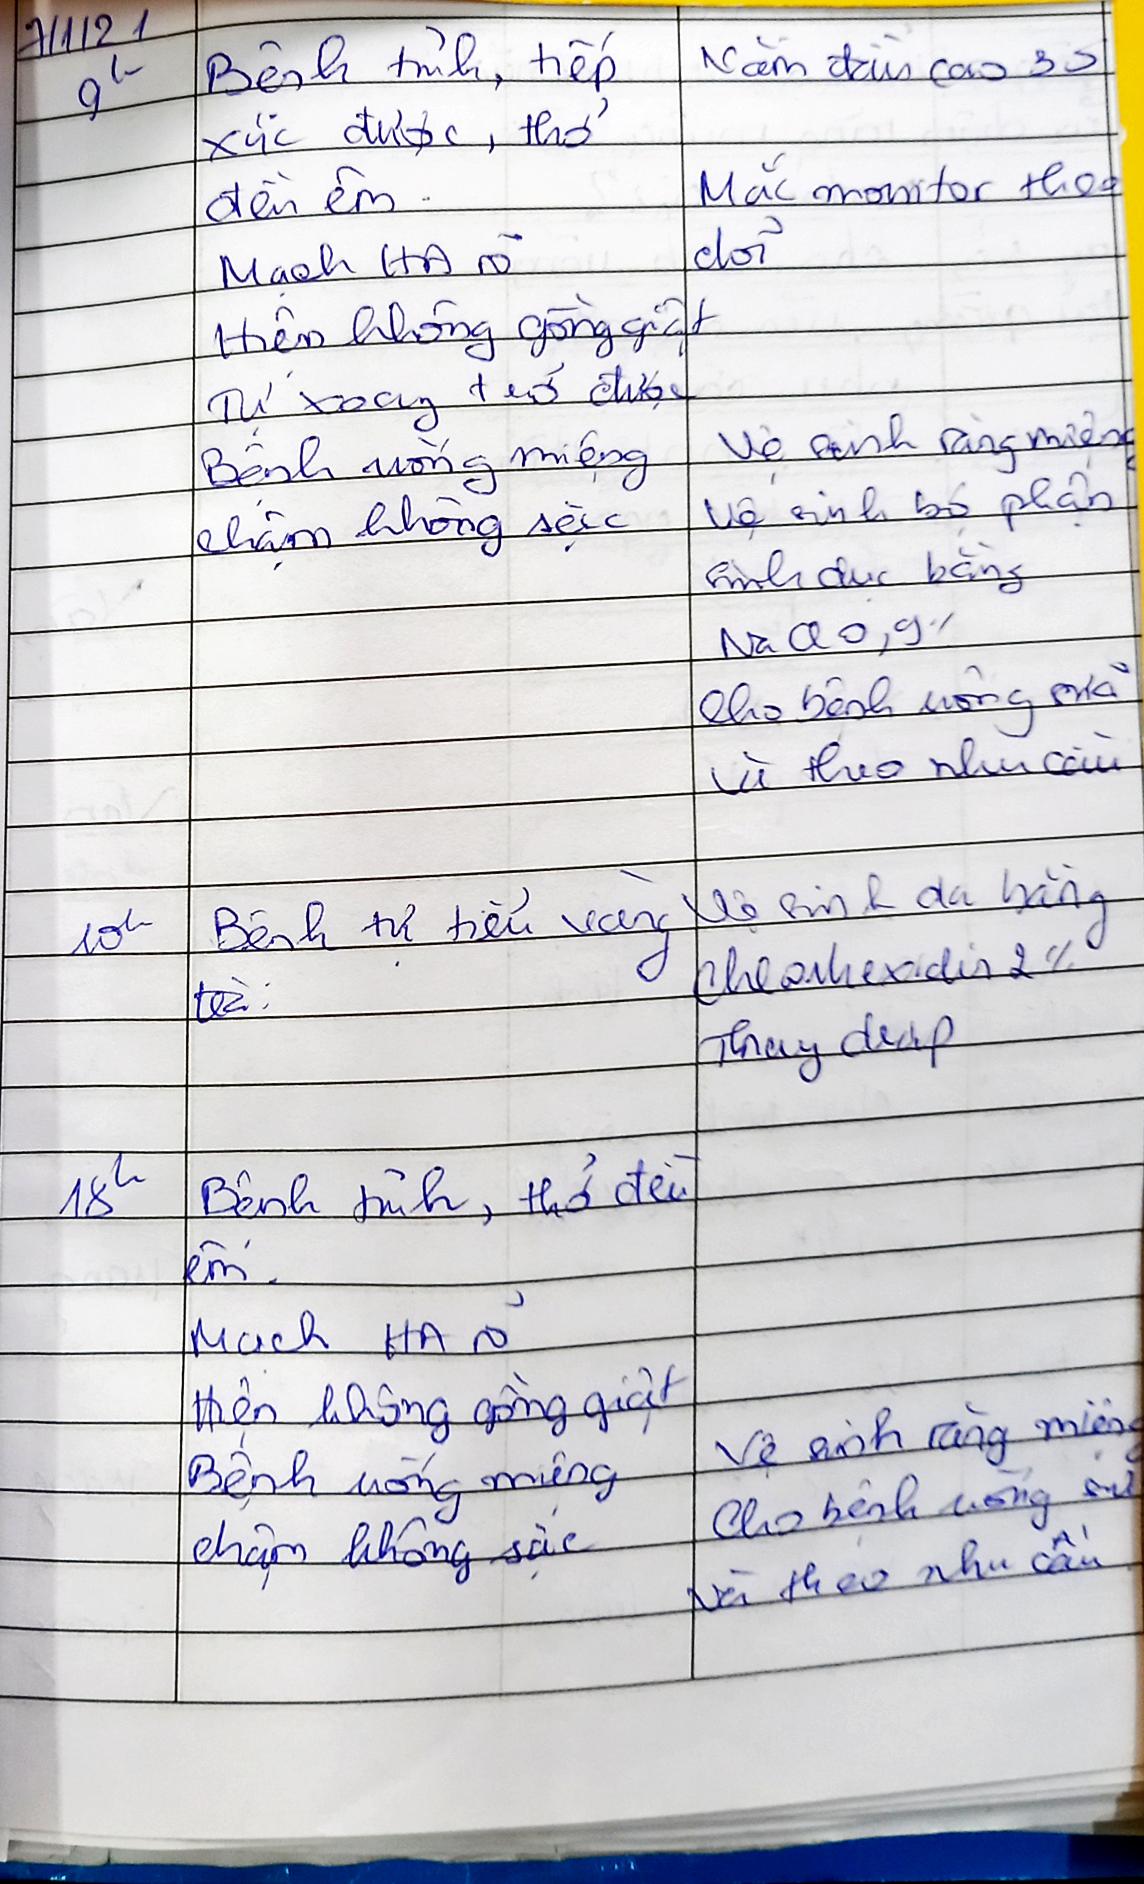 7/1/21
9h
Bệnh tỉnh, tiếp
xúc được, thở
đều êm.
Mạch HA rõ
Hiện không gồng giật
Tự xoay trở được
Bệnh uống miệng
chậm không sặc
Nằm đầu cao 30
Mắc monitor theo
dõi
Vệ sinh răng miệng
Vệ sinh bộ phận
sinh dục bằng
NaCl 0,9%
Cho bệnh uống sữa
và theo nhu cầu
10h
Bệnh tự tiểu vàng
Vệ sinh da bằng
Chlorhexidin 2%
Thay drap
18h
Bệnh tỉnh, thở đều
êm.
Mạch HA rõ
Hiện không gồng giật
Bệnh uống miệng
chậm không sặc
Vệ sinh răng miệng
Cho bệnh uống sữa
và theo nhu cầu